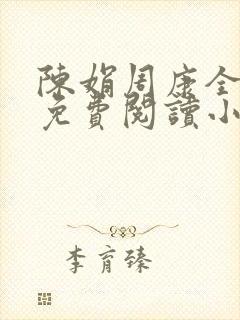 陳娟周康全
免費閱讀小
李育臻